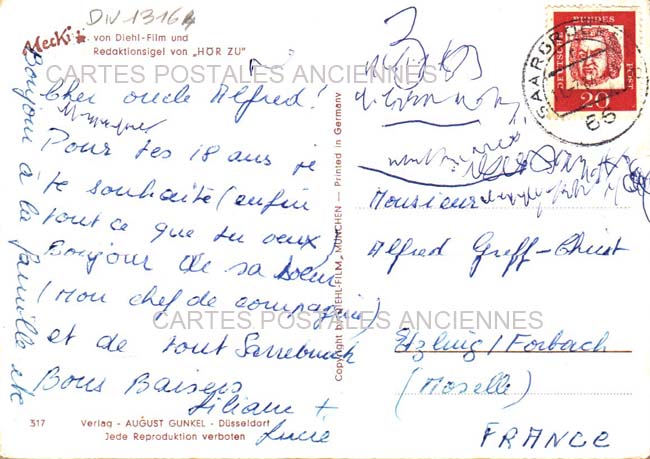 DIV 13164
Mecki
von Diehl-Film und
Redaktionsigel von „HÖR ZU"
CARTES POSTALES ANCIENNES
Cher oncle Alfred!
Pour tes 18 ans je
te souhaite (enfin
tout ce que tu veux)
Bonjour de sa soeur
(Mon chef de compagnie)
et de tout Sarrebruck
Bons Baisers
Liliane +
Lucie
Bonjour à la famille etc
317
Verlag - AUGUST GUNKEL - Düsseldorf
Jede Reproduktion verboten
Copyright by DIEHL-FILM, MÜNCHEN — Printed in Germany
3
DEUTSCHE
BUNDES
POST
20
SAARBRÜ
66
Monsieur
Alfred Greff-Christ
Etzling / Forbach
(Moselle)
FRANCE
CARTES POSTALES ANCIENNES